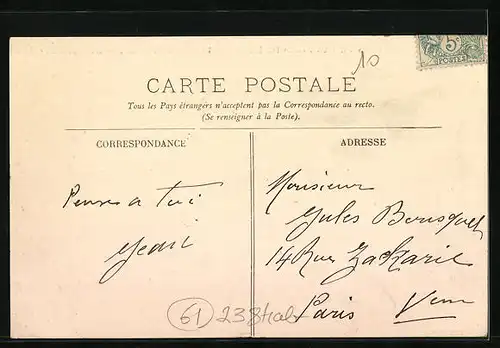 10
5c
POSTES
CARTE POSTALE
Tous les Pays étrangers n'acceptent pas la Correspondance au recto.
(Se renseigner à la Poste).
CORRESPONDANCE
ADRESSE
Pense a toi
Jean
Monsieur
Jules Bousquet
14 Rue Zacharie
Paris Vem
61
23